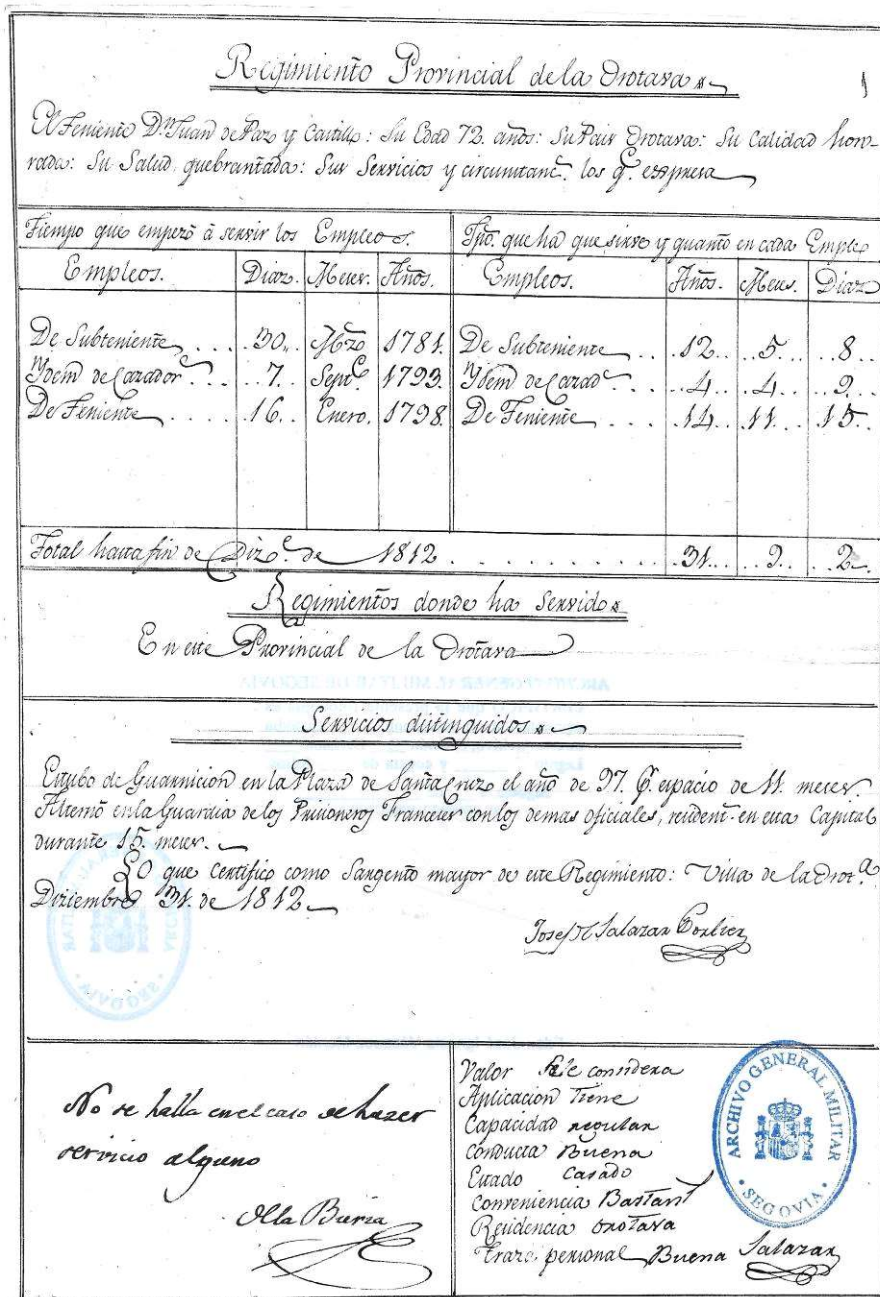 Regimiento Provincial de la Orotava
1
El Teniente Dn. Juan de Paz y Castillo: Su Edad 72. años: Su Pais Orotava: Su Calidad hon-
rada: Su Salud, quebrantada: Sus Servicios y circunstanc.s los q.e expresa
Tiempo que empezó à servir los Empleos. Tpo. que ha que sirve y quanto en cada Empleo
Empleos. Diaz. Meses. Años. Empleos. Años. Meses. Diaz
De Subteniente 30. Mzo 1781. De Subteniente 12. 5. 8
Ydem de Cazador.s 7. Septe. 1793. Ydem de Cazad.s 4. 4. 9.
De Teniente 16. Enero. 1798. De Teniente 14. 11. 15.
Total hasta fin de Dize. de 1812 31. 9. 2.
Regimientos donde ha Servido
En este Provincial de la Orotava
Servicios distinguidos
Estubo de Guarnicion en la Plaza de Santa Cruz el año de 97. P. espacio de 11. meses.
Alternó en la Guardia de los Prisioneros Franceses con los demas oficiales, resident. en esta Capital
durante 15. meses.
Lo que Certifico como Sargento mayor de este Regimiento: Villa de la Orot.a
Diziembre 31. de 1812
Josef Salazar
No se halla en el caso de hazer
servicio alguno
Valor Se le considera
Aplicacion Tiene
Capacidad regular
Conducta Buena
Estado Casado
Conveniencia Bastant.
Residencia Orotava
Traza personal Buena Salazar
ARCHIVO GENERAL MILITAR
SEGOVIA